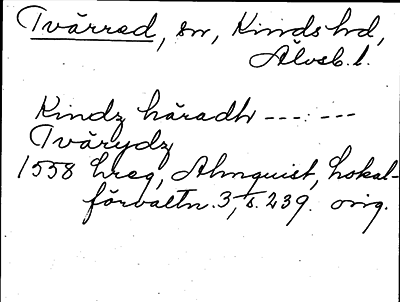 Tvärred, sn, Kinds hd,
Älvsb. l.
Kindz häradh --- : ---
Tvärydz
1558 hreg, Almquist, Lokal-
förvaltn. 3, s. 239. orig.